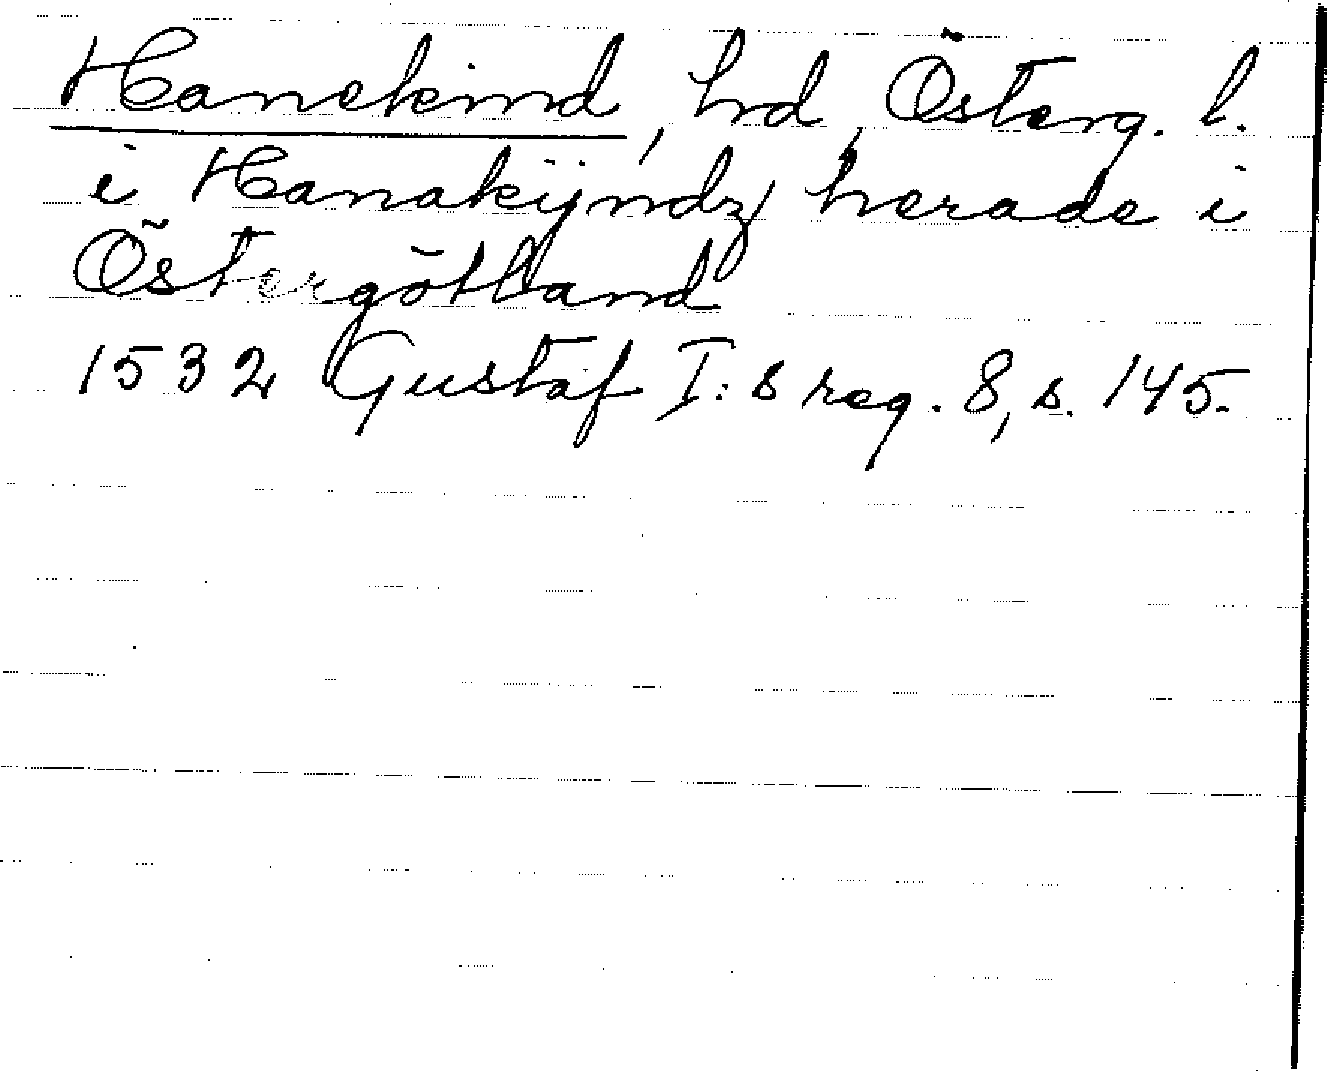 Hanekind, hd, Österg. l.
i Hanakÿndz herade i
Östergötland
1532 Gustaf I:s reg. 8, s. 145.